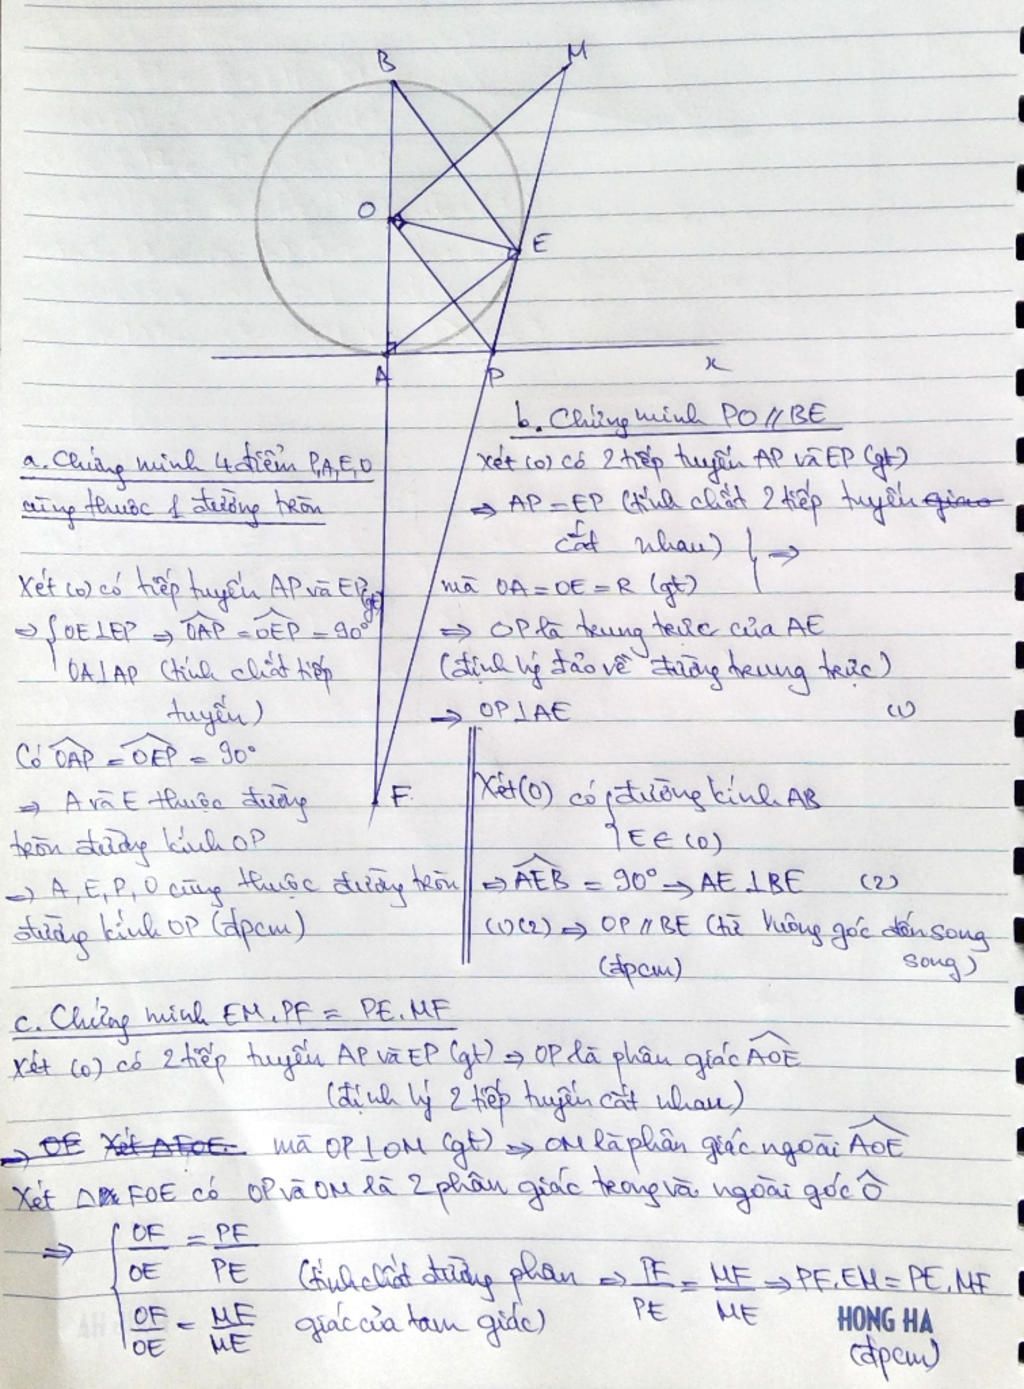 B
M
O
E
A
P
x
F
a. Chứng minh 4 điểm P,A,E,O
cùng thuộc 1 đường tròn
Xét (O) có tiếp tuyến AP và EP (gt)
⇒ { OE⊥EP ⇒ \widehat{OAP} = \widehat{OEP} = 90°
OA⊥AP (tính chất tiếp
tuyến)
Có \widehat{OAP} = \widehat{OEP} = 90°
⇒ A và E thuộc đường
tròn đường kính OP
⇒ A, E, P, O cùng thuộc đường tròn
đường kính OP (đpcm)
b. Chứng minh PO // BE
Xét (O) có 2 tiếp tuyến AP và EP (gt)
⇒ AP = EP (tính chất 2 tiếp tuyến giao
cắt nhau) } ⇒
mà OA = OE = R (gt)
⇒ OP là trung trực của AE
(định lý đảo về đường trung trực)
⇒ OP⊥AE (1)
Xét (O) có { đường kính AB
E ∈ (O)
⇒ \widehat{AEB} = 90° ⇒ AE⊥BE (2)
(1)(2) ⇒ OP // BE (từ vuông góc đến song
song)
(đpcm)
c. Chứng minh EM.PF = PE.MF
Xét (O) có 2 tiếp tuyến AP và EP (gt) ⇒ OP là phân giác \widehat{AOE}
(định lý 2 tiếp tuyến cắt nhau)
⇒ OE Xét ΔFOE. mà OP⊥OM (gt) ⇒ OM là phân giác ngoài \widehat{AOE}
Xét Δ FOE có OP và OM là 2 phân giác trong và ngoài góc Ô
⇒ { OF/OE = PF/PE
(tính chất đường phân ⇒ PF/PE = MF/ME ⇒ PF.EM = PE.MF
OF/OE = MF/ME giác của tam giác)
HONG HA
(đpcm)